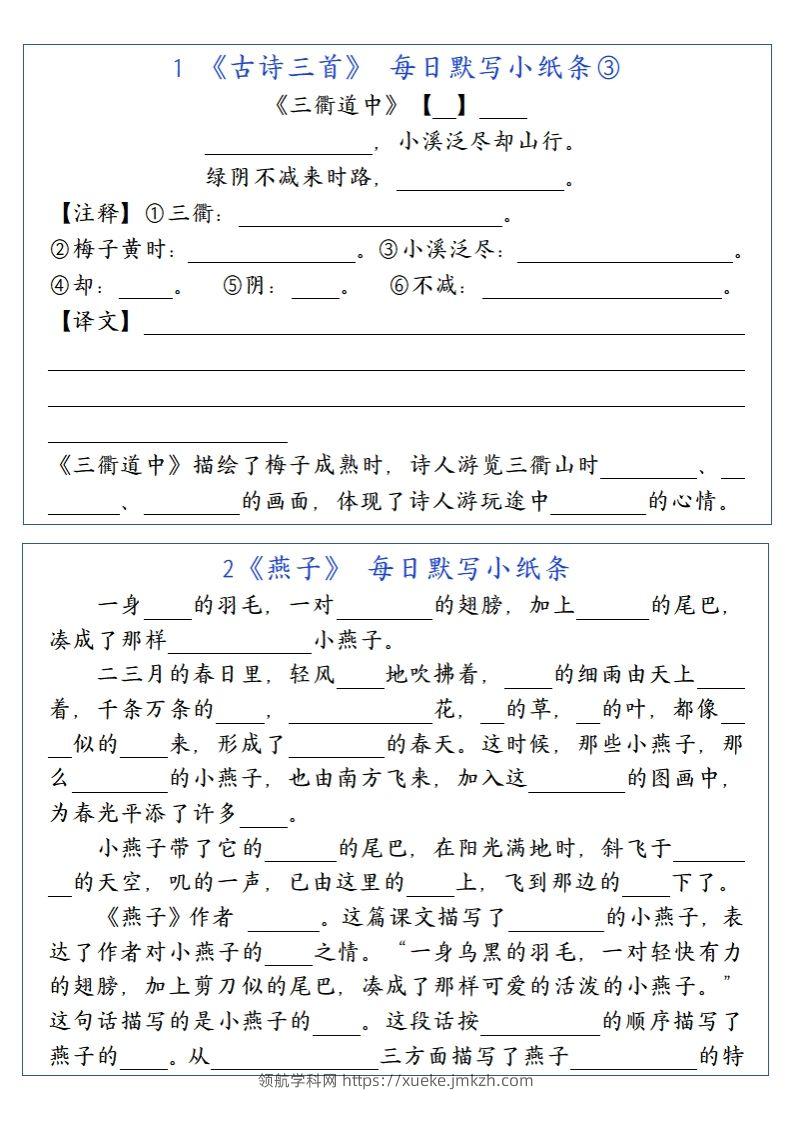 1 《古诗三首》 每日默写小纸条③
《三衢道中》【__】____
______________，小溪泛尽却山行。
绿阴不减来时路，______________。
【注释】①三衢：______________________。
②梅子黄时：______________。③小溪泛尽：__________________。
④却：____。 ⑤阴：____。 ⑥不减：____________________。
【译文】__________________________________________________
__________________________________________________________
__________________________________________________________
____________________
《三衢道中》描绘了梅子成熟时，诗人游览三衢山时________、__
______、________的画面，体现了诗人游玩途中________的心情。
2《燕子》 每日默写小纸条
一身____的羽毛，一对________的翅膀，加上______的尾巴，
凑成了那样____________小燕子。
二三月的春日里，轻风____地吹拂着，____的细雨由天上____
着，千条万条的____，____________花，__的草，__的叶，都像__
__似的____来，形成了________的春天。这时候，那些小燕子，那
么________的小燕子，也由南方飞来，加入这________的图画中，
为春光平添了许多____。
小燕子带了它的______的尾巴，在阳光满地时，斜飞于______
__的天空，叽的一声，已由这里的____上，飞到那边的____下了。
《燕子》作者 ______。这篇课文描写了________的小燕子，表
达了作者对小燕子的____之情。“一身乌黑的羽毛，一对轻快有力
的翅膀，加上剪刀似的尾巴，凑成了那样可爱的活泼的小燕子。”
这句话描写的是小燕子的____。这段话按__________的顺序描写了
燕子的____。从______________三方面描写了燕子__________的特
领航学科网 https://xueke.jmkzh.com